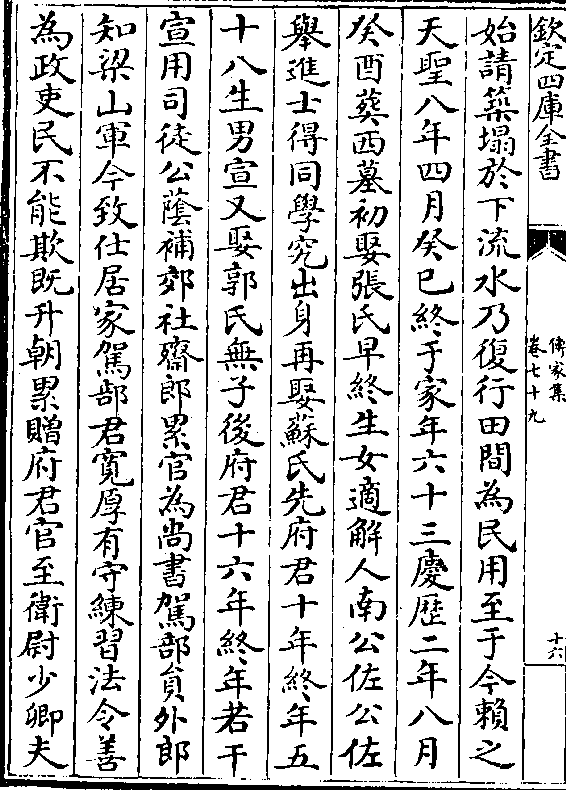 欽定四庫全書
傳家集
卷七十九
十六
始請築塌於下流水乃復行田間為民用至于今賴之
天聖八年四月癸巳終于家年六十三慶歷二年八月
癸酉葬西墓初娶張氏早終生女適解人南公佐公佐
舉進士得同學究出身再娶蘇氏先府君十年終年五
十八生男宣又娶郭氏無子後府君十六年終年若干
宣用司徒公蔭補郊社齋郎累官為尚書駕部員外郎
知梁山軍今致仕居家駕部君寬厚有守練習法令善
為政吏民不能欺既升朝累贈府君官至衛尉少卿夫